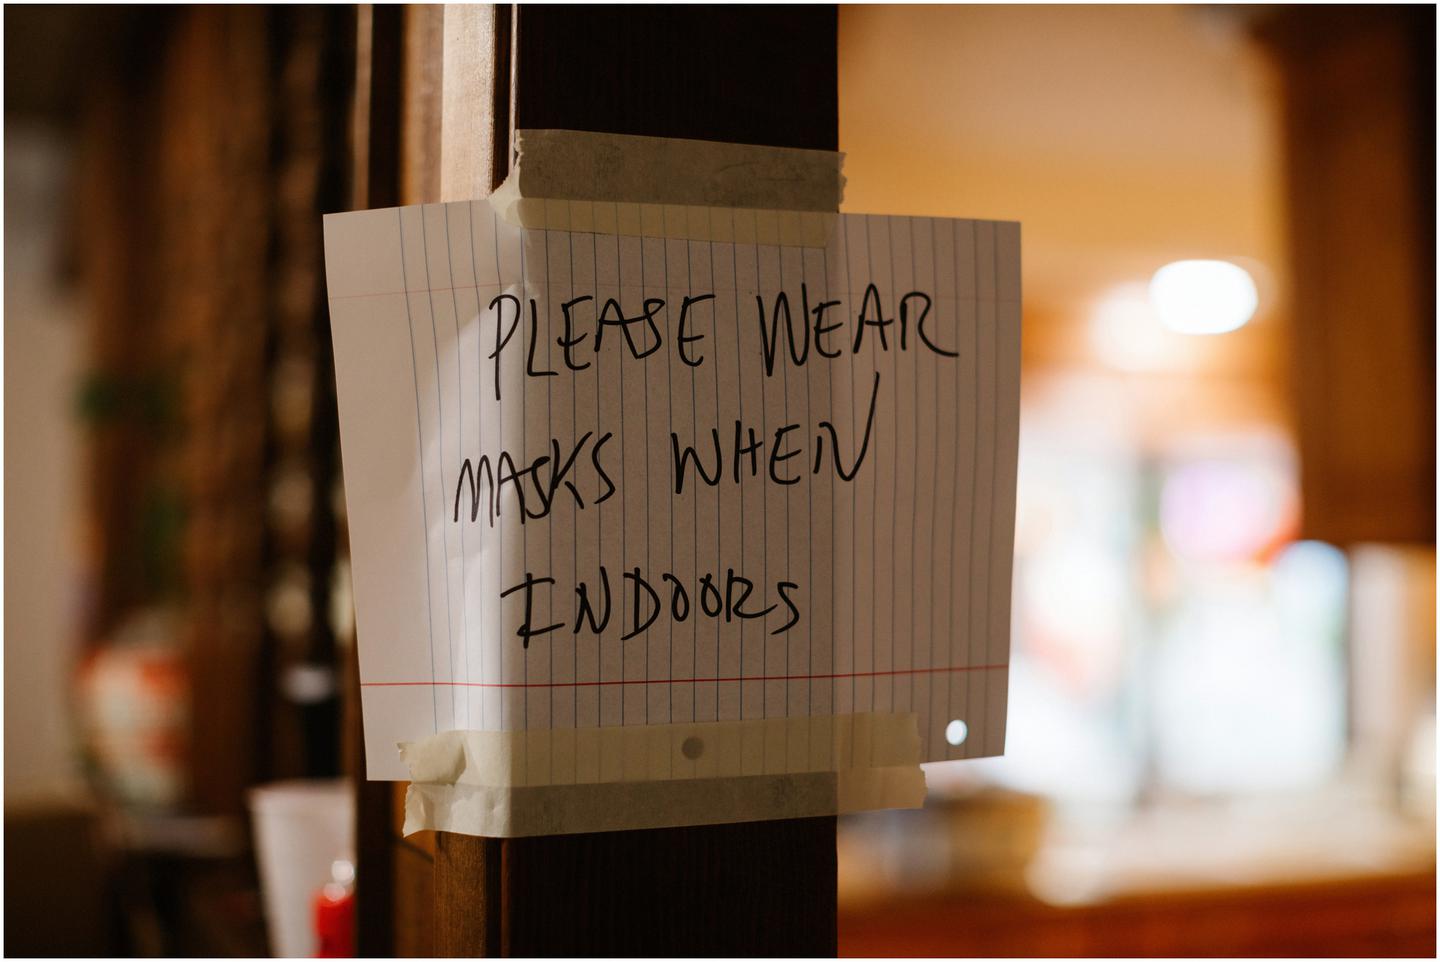 PLEASE WEAR
MASKS WHEN
INDOORS